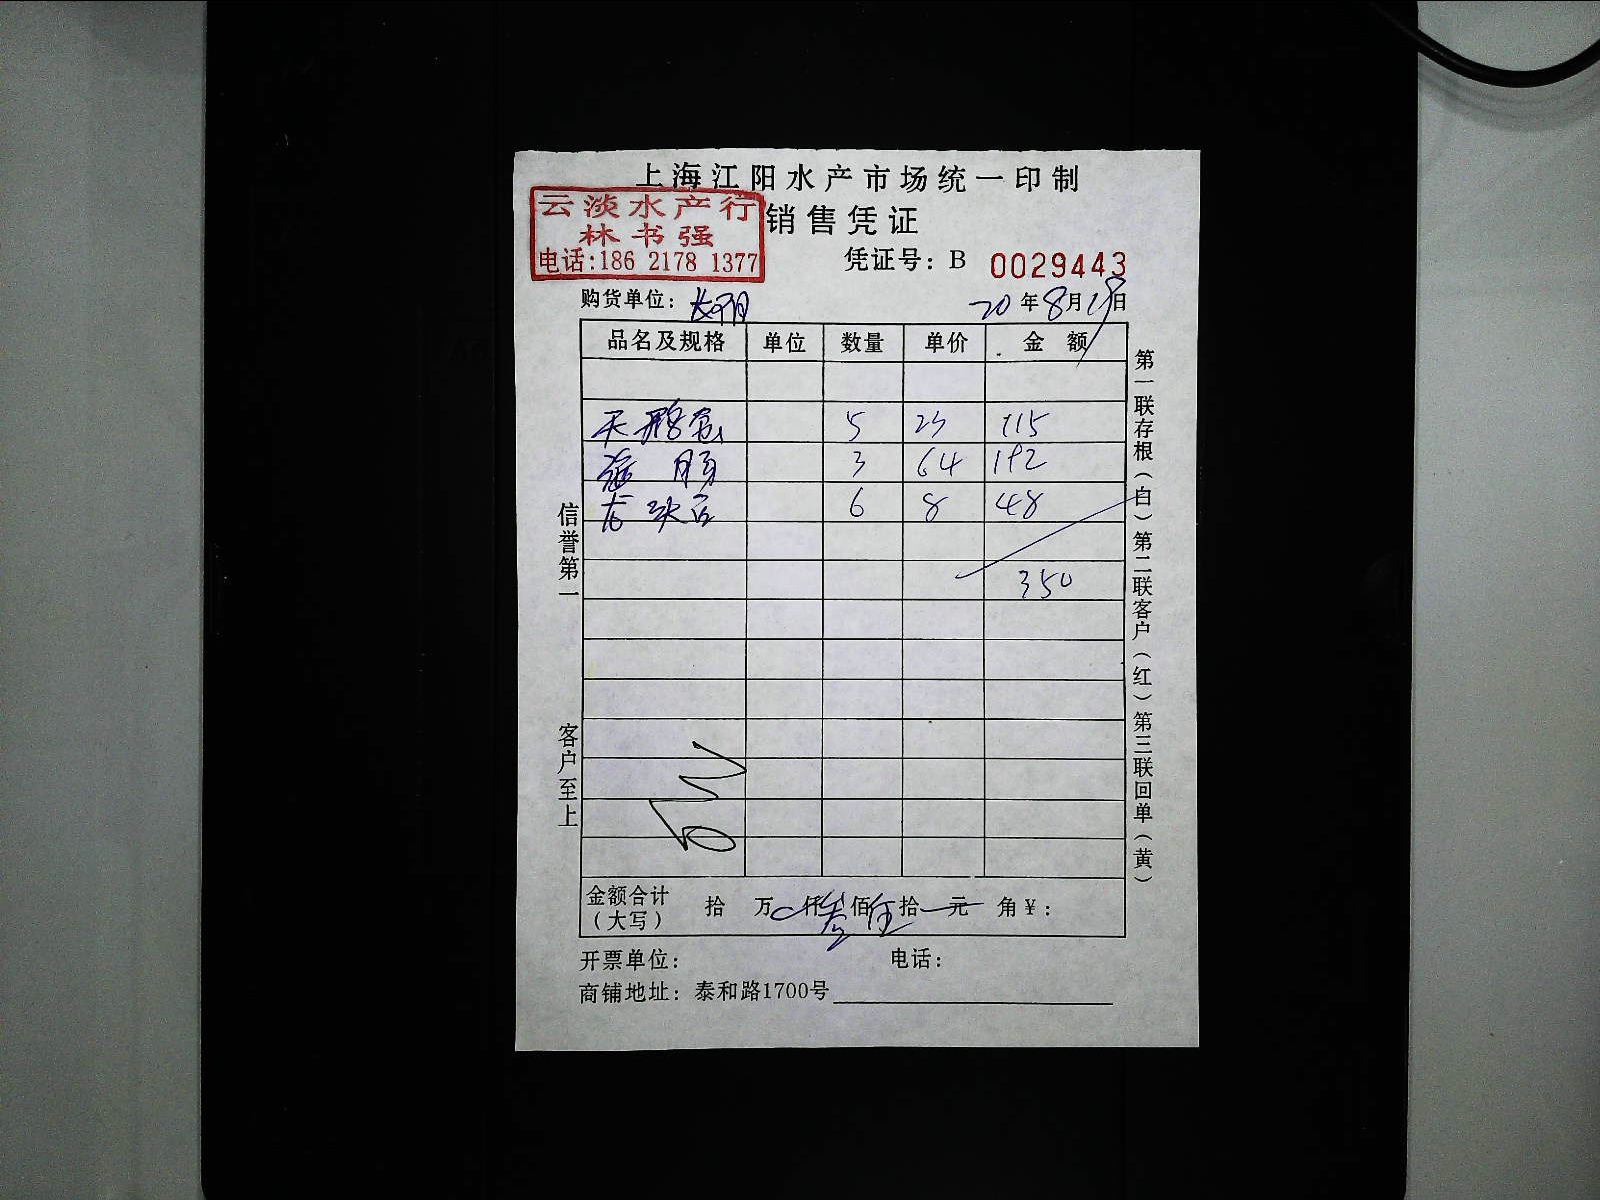 上海江阳水产市场统一印制
云淡水产行
林书强
电话:186 2178 1377
销售凭证
凭证号：B 0029443
购货单位：
20年8月 日
品名及规格 单位 数量 单价 金额
天鹅蛋 5 23 115
海肠 3 64 192
6 8 48
350
金额合计（大写） 拾 万 仟叁佰伍拾 元 角￥：
开票单位： 电话：
商铺地址：泰和路1700号
信誉第一 客户至上
第一联存根（白）第二联客户（红）第三联回单（黄）